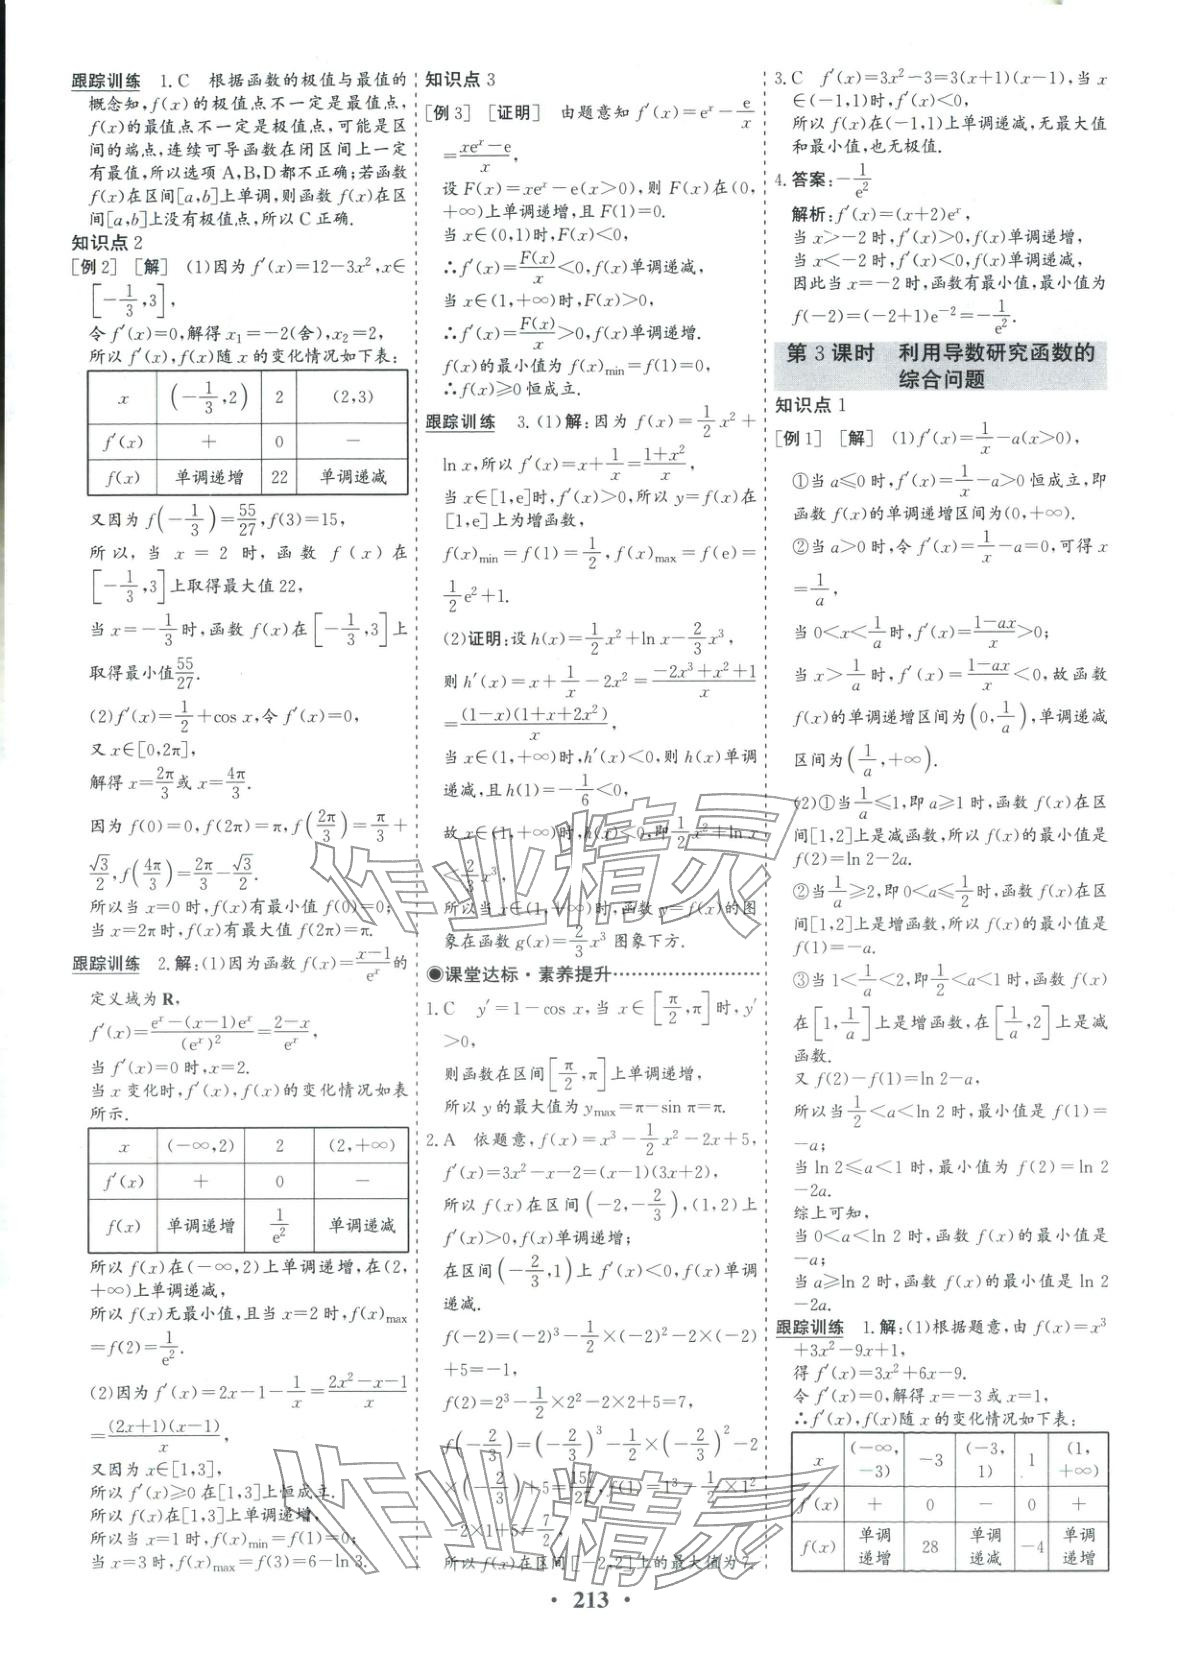 跟踪训练 1.C 根据函数的极值与最值的
概念知,f(x)的极值点不一定是最值点,
f(x)的最值点不一定是极值点,可能是区
间的端点,连续可导函数在闭区间上一定
有最值,所以选项A,B,D都不正确;若函数
f(x)在区间[a,b]上单调,则函数f(x)在区
间[a,b]上没有极值点,所以C正确.
知识点2
[例2] [解] (1)因为f′(x)=12-3x²,x∈
[-1/3,3],
令f′(x)=0,解得x₁=-2(舍),x₂=2,
所以f′(x),f(x)随x的变化情况如下表:
x (-1/3,2) 2 (2,3)
f′(x) + 0 -
f(x) 单调递增 22 单调递减
又因为f(-1/3)=55/27,f(3)=15,
所以,当x=2时,函数f(x)在
[-1/3,3]上取得最大值22,
当x=-1/3时,函数f(x)在[-1/3,3]上
取得最小值55/27.
(2)f′(x)=1/2+cos x,令f′(x)=0,
又x∈[0,2π],
解得x=2π/3或x=4π/3.
因为f(0)=0,f(2π)=π,f(2π/3)=π/3+
√3/2,f(4π/3)=2π/3-√3/2.
所以当x=0时,f(x)有最小值f(0)=0;
当x=2π时,f(x)有最大值f(2π)=π.
跟踪训练 2.解:(1)因为函数f(x)=(x-1)/eˣ的
定义域为R,
f′(x)=(eˣ-(x-1)eˣ)/(eˣ)²=(2-x)/eˣ,
当f′(x)=0时,x=2.
当x变化时,f′(x),f(x)的变化情况如表
所示.
x (-∞,2) 2 (2,+∞)
f′(x) + 0 -
f(x) 单调递增 1/e² 单调递减
所以f(x)在(-∞,2)上单调递增,在(2,
+∞)上单调递减,
所以f(x)无最小值,且当x=2时,f(x)max
=f(2)=1/e².
(2)因为f′(x)=2x-1-1/x=(2x²-x-1)/x
=(2x+1)(x-1)/x,
又因为x∈[1,3],
所以f′(x)≥0在[1,3]上恒成立.
所以f(x)在[1,3]上单调递增,
所以当x=1时,f(x)min=f(1)=0;
当x=3时,f(x)max=f(3)=6-ln 3.
知识点3
[例3] [证明] 由题意知f′(x)=eˣ-e/x
=(xeˣ-e)/x,
设F(x)=xeˣ-e(x>0),则F(x)在(0,
+∞)上单调递增,且F(1)=0.
当x∈(0,1)时,F(x)<0,
∴f′(x)=F(x)/x<0,f(x)单调递减,
当x∈(1,+∞)时,F(x)>0,
∴f′(x)=F(x)/x>0,f(x)单调递增.
f(x)的最小值为f(x)min=f(1)=0,
∴f(x)≥0恒成立.
跟踪训练 3.(1)解:因为f(x)=1/2x²+
ln x,所以f′(x)=x+1/x=(1+x²)/x,
当x∈[1,e]时,f′(x)>0,所以y=f(x)在
[1,e]上为增函数,
f(x)min=f(1)=1/2,f(x)max=f(e)=
1/2e²+1.
(2)证明:设h(x)=1/2x²+ln x-2/3x³,
则h′(x)=x+1/x-2x²=(-2x³+x²+1)/x
=(1-x)(1+x+2x²)/x,
当x∈(1,+∞)时,h′(x)<0,则h(x)单调
递减,且h(1)=-1/6<0,
故x∈(1,+∞)时,h(x)<0,即1/2x²+ln x
<2/3x³,
所以当x∈(1,+∞)时,函数y=f(x)的图
象在函数g(x)=2/3x³图象下方.
课堂达标·素养提升
1.C y′=1-cos x,当x∈[π/2,π]时,y′
>0,
则函数在区间[π/2,π]上单调递增,
所以y的最大值为ymax=π-sin π=π.
2.A 依题意,f(x)=x³-1/2x²-2x+5,
f′(x)=3x²-x-2=(x-1)(3x+2),
所以f(x)在区间(-2,-2/3),(1,2)上
f′(x)>0,f(x)单调递增;
在区间(-2/3,1)上f′(x)<0,f(x)单调
递减.
f(-2)=(-2)³-1/2×(-2)²-2×(-2)
+5=-1,
f(2)=2³-1/2×2²-2×2+5=7,
f(-2/3)=(-2/3)³-1/2×(-2/3)²-2
×(-2/3)+5=157/27,f(1)=1³-1/2×1²
-2×1+5=7/2,
所以f(x)在区间[-2,2]上的最大值为7.
3.C f′(x)=3x²-3=3(x+1)(x-1),当x
∈(-1,1)时,f′(x)<0,
所以f(x)在(-1,1)上单调递减,无最大值
和最小值,也无极值.
4.答案:-1/e²
解析:f′(x)=(x+2)eˣ,
当x>-2时,f′(x)>0,f(x)单调递增,
当x<-2时,f′(x)<0,f(x)单调递减,
因此当x=-2时,函数有最小值,最小值为
f(-2)=(-2+1)e⁻²=-1/e².
第3课时 利用导数研究函数的
综合问题
知识点1
[例1] [解] (1)f′(x)=1/x-a(x>0),
①当a≤0时,f′(x)=1/x-a>0恒成立,即
函数f(x)的单调递增区间为(0,+∞).
②当a>0时,令f′(x)=1/x-a=0,可得x
=1/a,
当0<x<1/a时,f′(x)=(1-ax)/x>0;
当x>1/a时,f′(x)=(1-ax)/x<0,故函数
f(x)的单调递增区间为(0,1/a),单调递减
区间为(1/a,+∞).
(2)①当1/a≤1,即a≥1时,函数f(x)在区
间[1,2]上是减函数,所以f(x)的最小值是
f(2)=ln 2-2a.
②当1/a≥2,即0<a≤1/2时,函数f(x)在区
间[1,2]上是增函数,所以f(x)的最小值是
f(1)=-a.
③当1<1/a<2,即1/2<a<1时,函数f(x)
在[1,1/a]上是增函数,在[1/a,2]上是减
函数.
又f(2)-f(1)=ln 2-a,
所以当1/2<a<ln 2时,最小值是f(1)=
-a;
当ln 2≤a<1时,最小值为f(2)=ln 2
-2a.
综上可知,
当0<a<ln 2时,函数f(x)的最小值是
-a;
当a≥ln 2时,函数f(x)的最小值是ln 2
-2a.
跟踪训练 1.解:(1)根据题意,由f(x)=x³
+3x²-9x+1,
得f′(x)=3x²+6x-9.
令f′(x)=0,解得x=-3或x=1,
∴f′(x),f(x)随x的变化情况如下表:
x (-∞,-3) -3 (-3,1) 1 (1,+∞)
f′(x) + 0 - 0 +
f(x) 单调递增 28 单调递减 -4 单调递增
作业精灵
作业精灵
· 213 ·